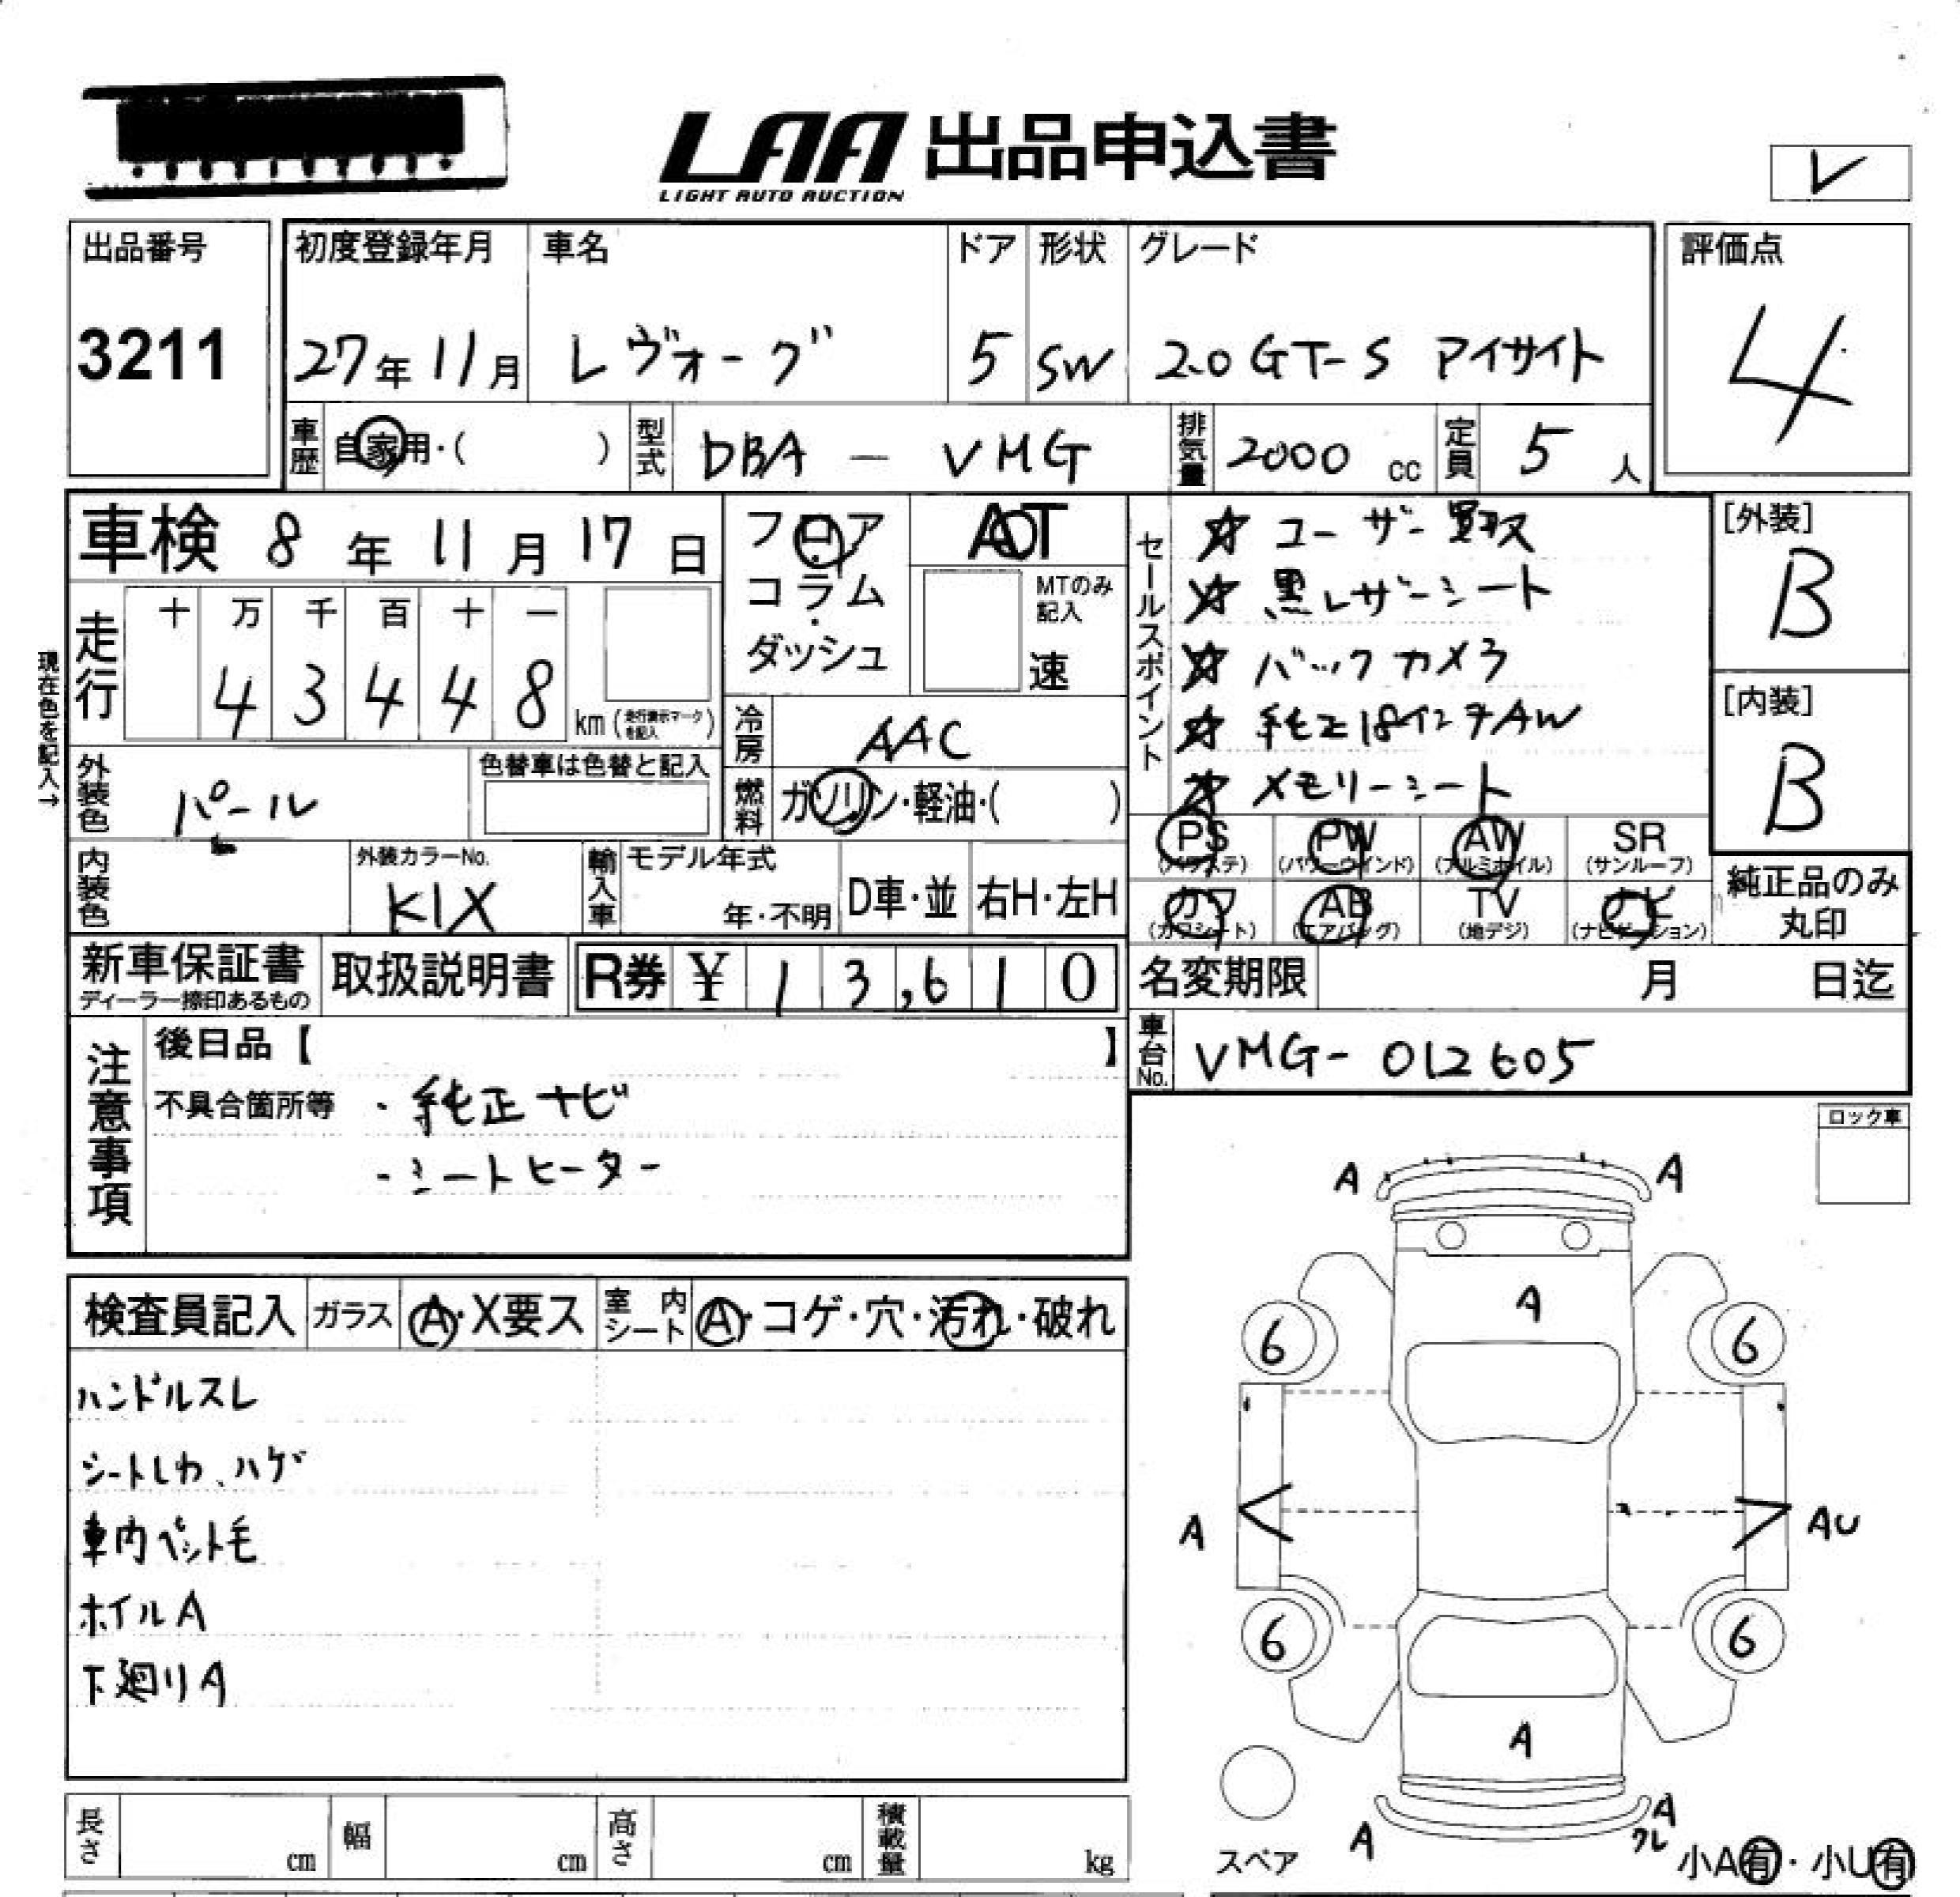 LAA 出品申込書
LIGHT AUTO AUCTION
レ
出品番号
3211
初度登録年月 車名 ドア 形状 グレード
27年11月 レヴォーグ 5 SW 2.0GT-S アイサイト
評価点
4
車歴 自家用・( ) 型式 DBA - VMG 排気量 2000 cc 定員 5 人
車検 8年11月17日
現在色を記入→
走行 十 万 千 百 十 一
4 3 4 4 8 km(走行表示マークを記入)
外装色 パール 色替車は色替と記入
内装色 外装カラーNo. K1X
輸入車 モデル年式 年・不明 D車・並 右H・左H
フロア・コラム・ダッシュ
AT
MTのみ記入
速
冷房 AAC
燃料 ガソリン・軽油・( )
セールスポイント
☆ ユーザー買取
☆ 黒レザーシート
☆ バックカメラ
☆ 純正18インチAW
☆ メモリーシート
[外装]
B
[内装]
B
PS (パワステ) PW (パワーウインド) AW (アルミホイル) SR (サンルーフ)
カワ (カワシート) AB (エアバッグ) TV (地デジ) ナビ (ナビゲーション)
純正品のみ丸印
新車保証書 ディーラー捺印あるもの 取扱説明書 R券 ¥ 13,610
名変期限 月 日迄
車台No. VMG-012605
注意事項
後日品【 】
不具合箇所等 ・純正ナビ
・シートヒーター
ロック車
検査員記入 ガラス A・X要ス 室内シート A・コゲ・穴・汚れ・破れ
ハンドルスレ
シートしわ、ハゲ
車内ペット毛
ホイルA
下廻りA
A A
A
6 6
A AU
6 6
A
A A
ワレ
スペア
小A有・小U有
長さ cm 幅 cm 高さ cm 積載量 kg